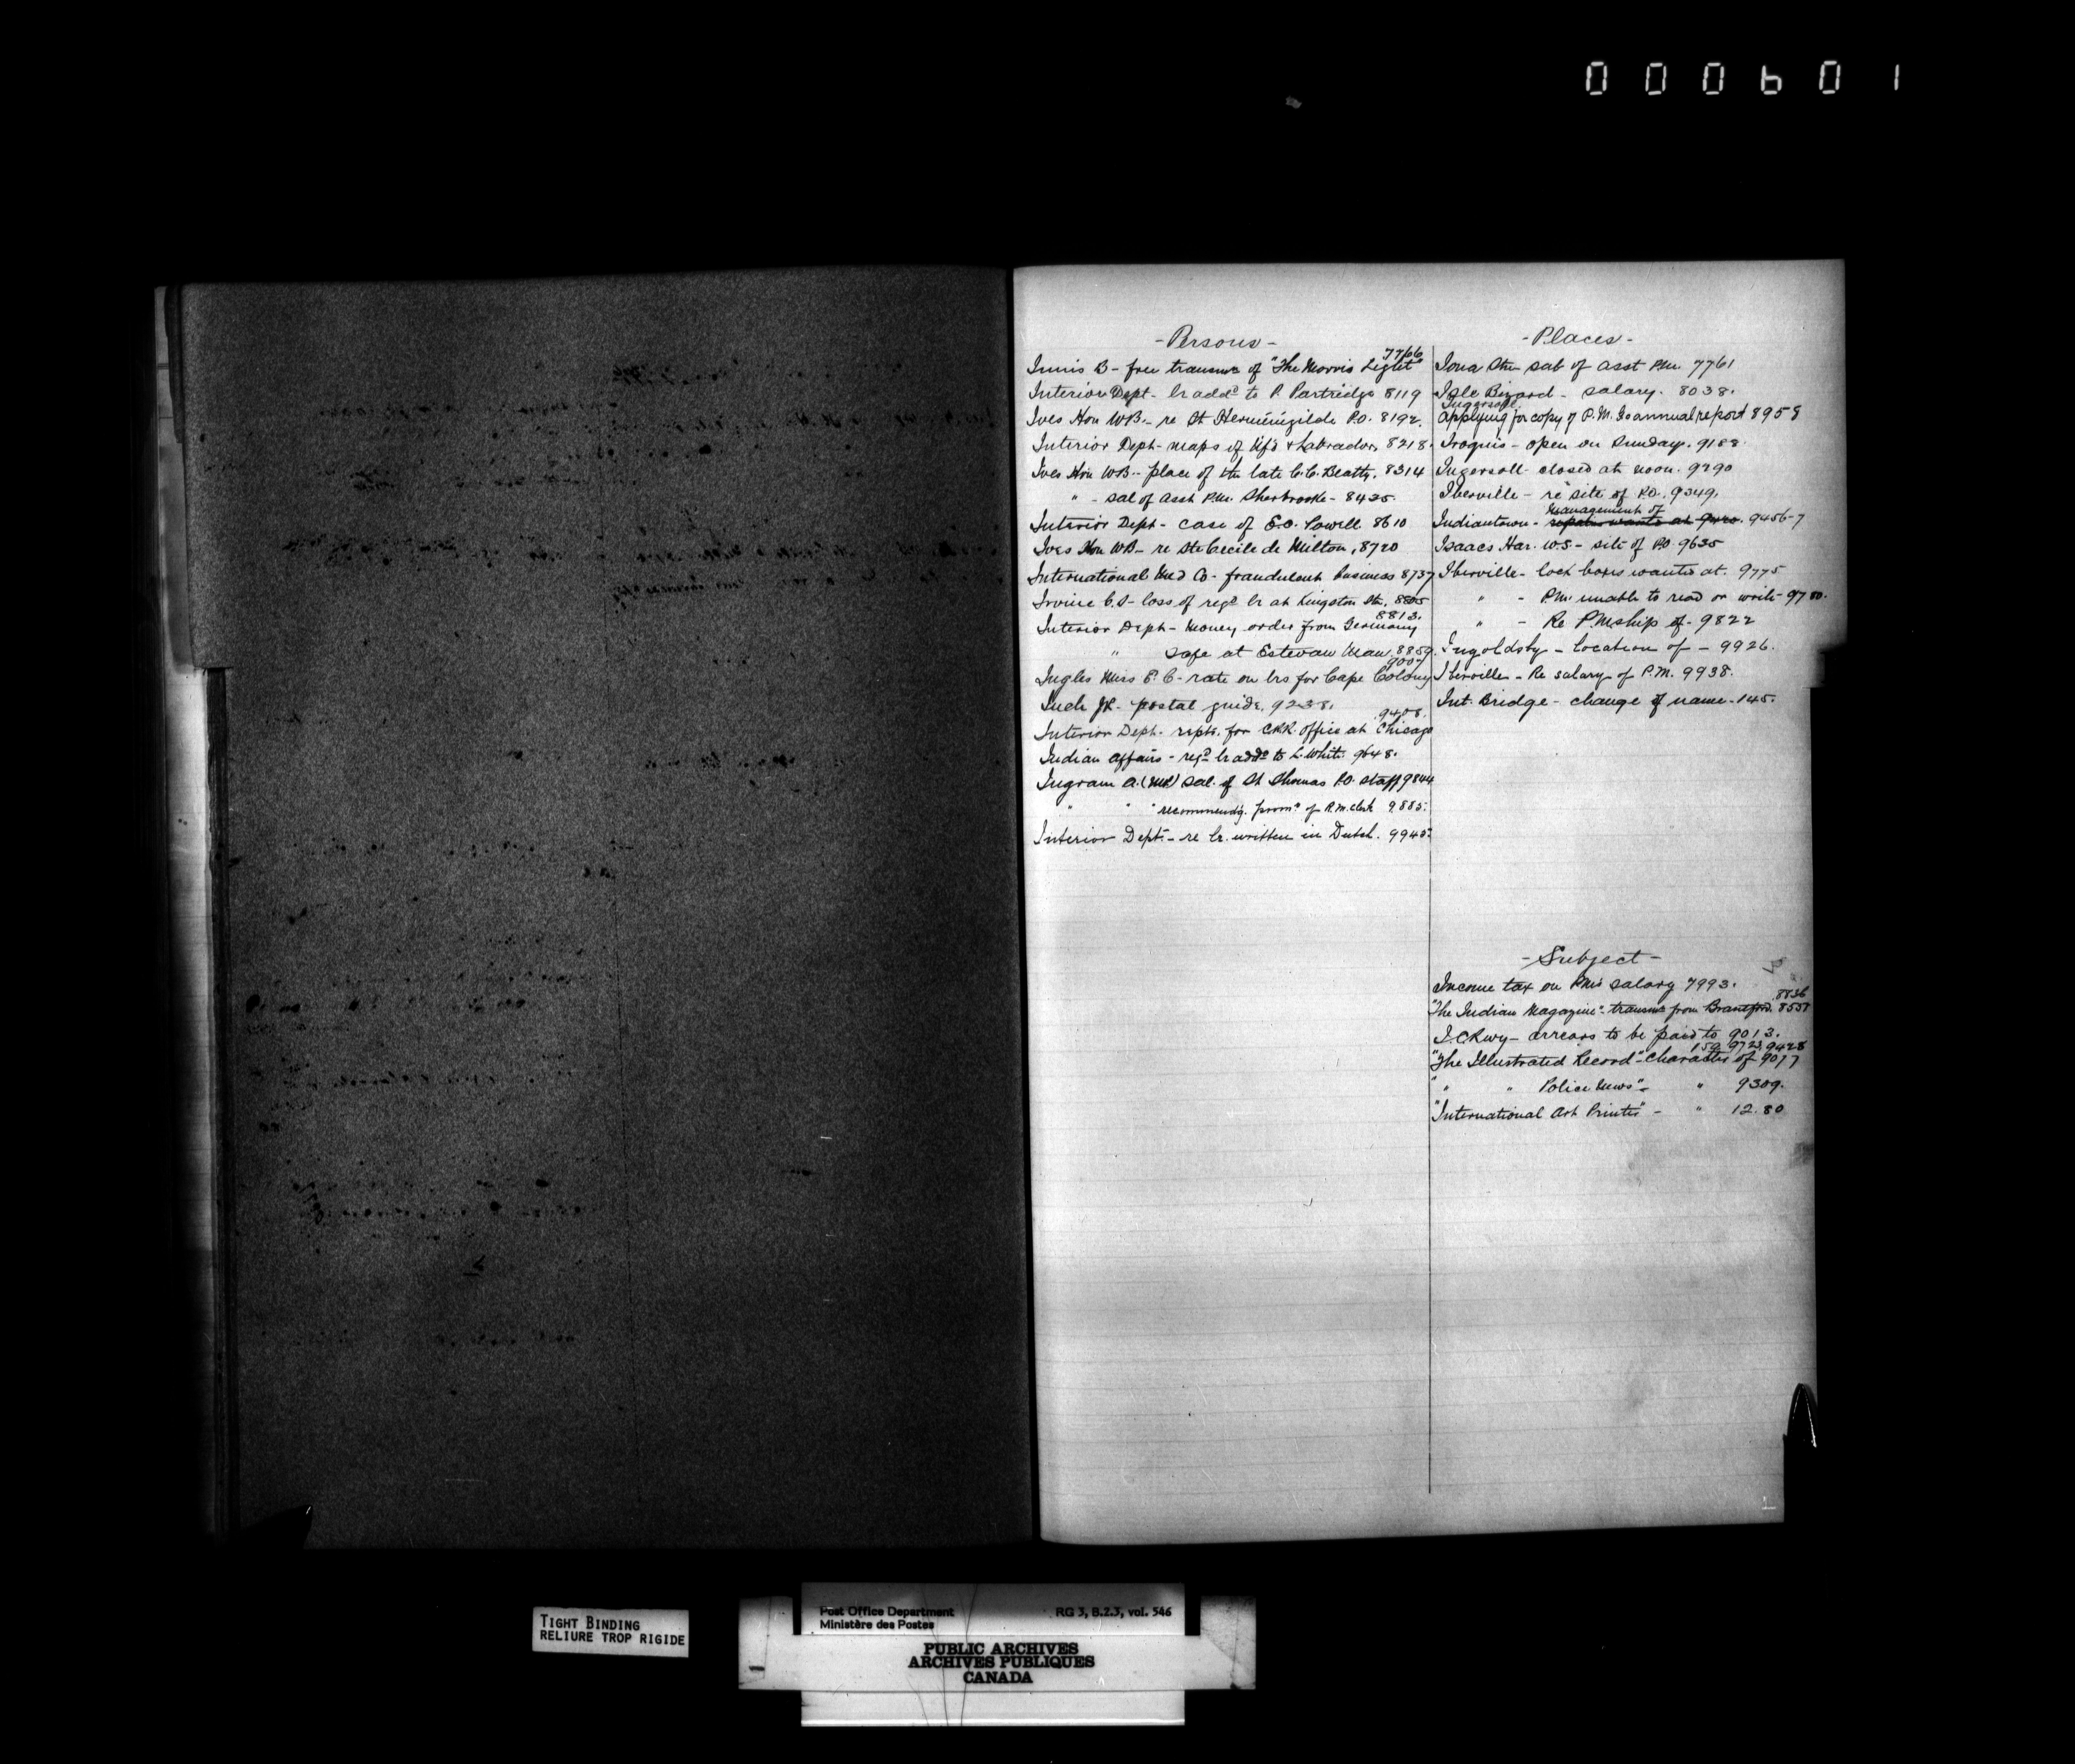 000601
- Persons -
Innis B - free transmn of "The Morris Light" 7766
Interior Dept - lr addd to P. Partridge 8119
Ives Hon WB - re St Herminigilde P.O. 8192.
Interior Dept - maps of Nfd & Labrador, 8218.
Ives Hon WB - place of the late C.C. Beatty. 8314
" - sal of asst P.M. Sherbrooke - 8425.
Interior Dept - case of E.O. Lowell 8610
Ives Hon WB - re Ste Cecile de Milton, 8720
International Med Co - fraudulent business 8737
Irvine C.S - loss of regd lr at Kingston Stn, 8805
Interior Dept - Money order from Germany 8813.
" safe at Estevan Man. 8859.
Ingles Miss E. C - rate on lrs for Cape Colony 9007
Inch JR - postal guide, 9238.
Interior Dept - repts. for C.R.R. office at Chicago 9408.
Indian affairs - regd lr addd to L. White 9648.
Ingram A. (MP) sal. of St Thomas P.O. staff 9844
" " " recommendg. promn of R.M. clerk 9885.
Interior Dept - re lr. written in Dutch. 9945.
- Places -
Iona Stn - sal of asst P.M. 7761
Isle Bizard - salary. 8038.
Ingersoll
applying for copy of P.M. Gs annual report 8958
Iroquis - open on Sunday. 9188.
Ingersoll - closed at noon. 9290
Iberville - re site of P.O. 9349.
management of
Indiantown - repairs wants at 9420. 9456-7
Isaacs Har. W.S - site of P.O. 9635
Iberville - lock boxes wanted at. 9775
" - P.M. unable to read or write - 9780.
" - Re P.Mship of - 9822
Ingoldsby - location of - 9926.
Iberville - Re salary of P.M. 9938.
Int. Bridge - change of name - 145.
- Subject -
Income tax on P.Ms salary 7993.
8836
"The Indian Magazine" - transmn from Brantford. 8551
I.C.Rwy - arrears to be paid to 9013.
159 9723, 9428
"The Illustrated Record" - Character of 9077
" " Police News" - " 9309.
"International Art Printer" - " 12.80
TIGHT BINDING
RELIURE TROP RIGIDE
Post Office Department RG 3, B.2.3, vol. 546
Ministère des Postes
PUBLIC ARCHIVES
ARCHIVES PUBLIQUES
CANADA